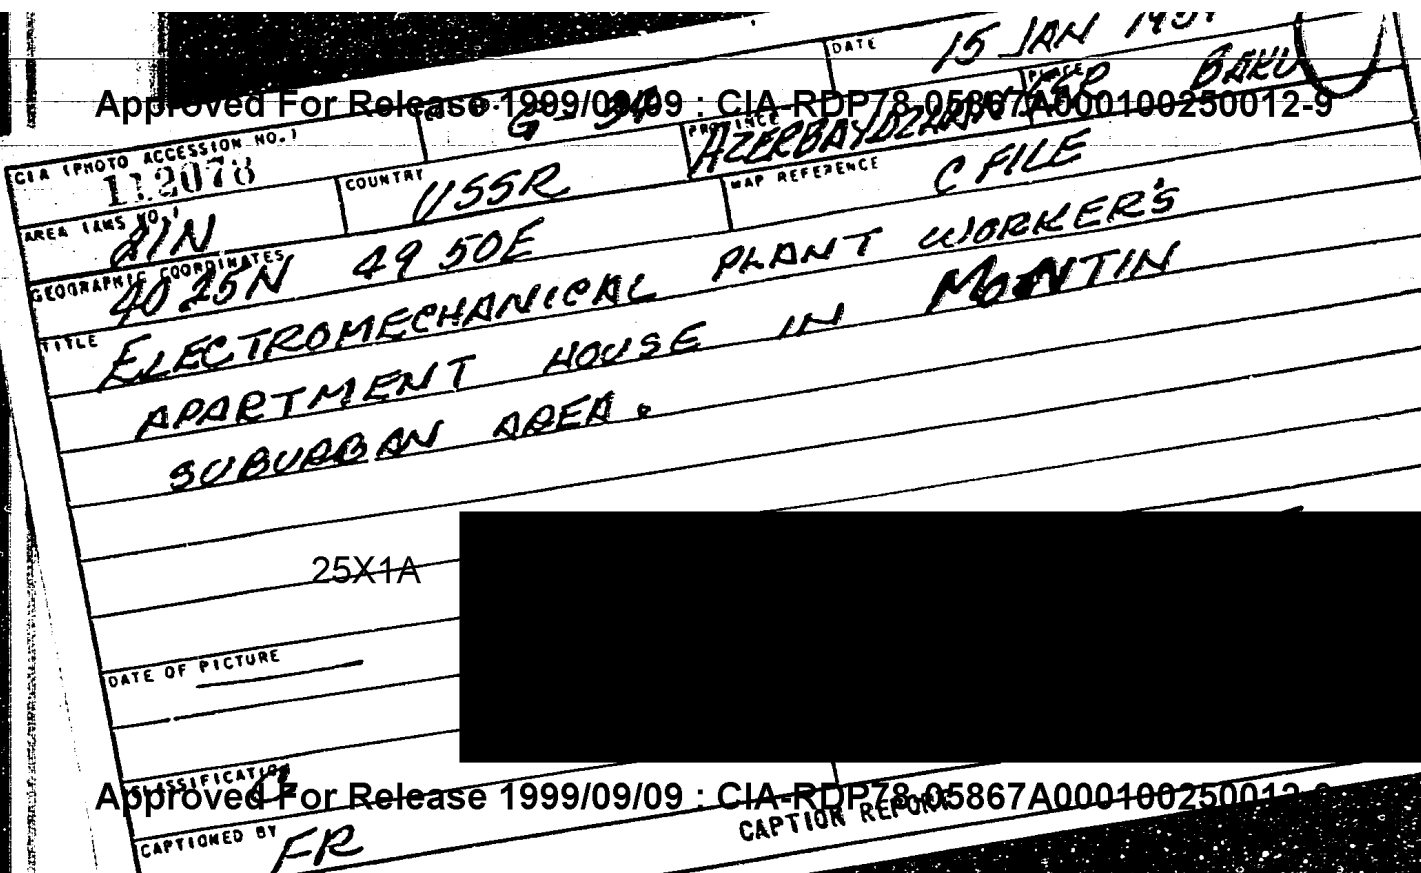 DATE 15 JAN
Approved For Release 1999/09/09 : CIA-RDP78-05867A000100250012-9
CIA (PHOTO ACCESSION NO.) 112078
G-34
PROVINCE AZERBAYDZHAN SSR
PLACE BAKU
AREA (AMS NO.) 81N
COUNTRY USSR
MAP REFERENCE C FILE
GEOGRAPHIC COORDINATES 40 25N 49 50E
TITLE ELECTROMECHANICAL PLANT WORKER'S
APARTMENT HOUSE IN MONTIN
SUBURBAN AREA.
25X1A
DATE OF PICTURE
CLASSIFICATION
Approved For Release 1999/09/09 : CIA-RDP78-05867A000100250012-9
CAPTIONED BY FR
CAPTION REPORT